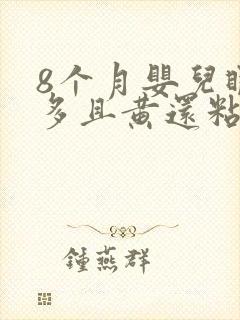 8个月嬰兒
多且黃還粘
鍾燕群